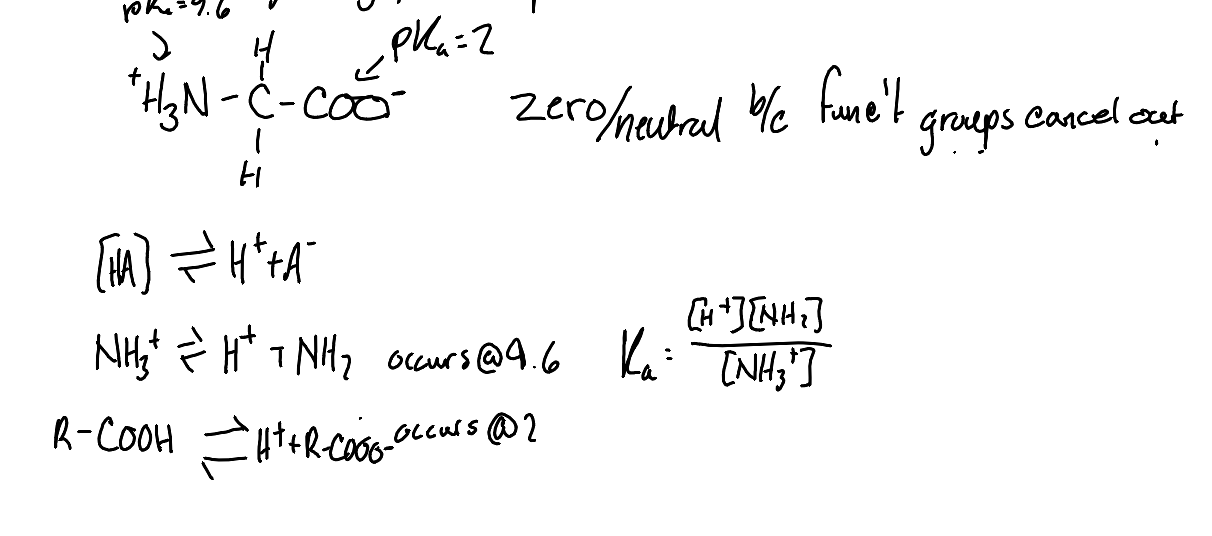 pKa=9.6
H pKa=2
⁺H₃N-C-COO⁻ zero/neutral b/c func'l groups cancel out
H
[HA] ⇌ H⁺+A⁻
NH₃⁺ ⇌ H⁺ + NH₂ occurs@9.6 Ka = [H⁺][NH₂] / [NH₃⁺]
R-COOH ⇌ H⁺+R-COO- occurs @2